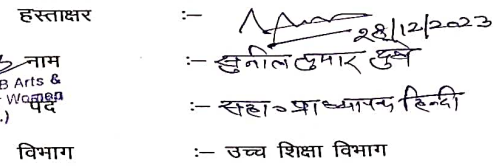 हस्ताक्षर :- 28/12/2023
नाम :- सुनील कुमार दुबे
B Arts &
Women
पद :- सहा० प्राध्यापक हिन्दी
.)
विभाग :- उच्च शिक्षा विभाग